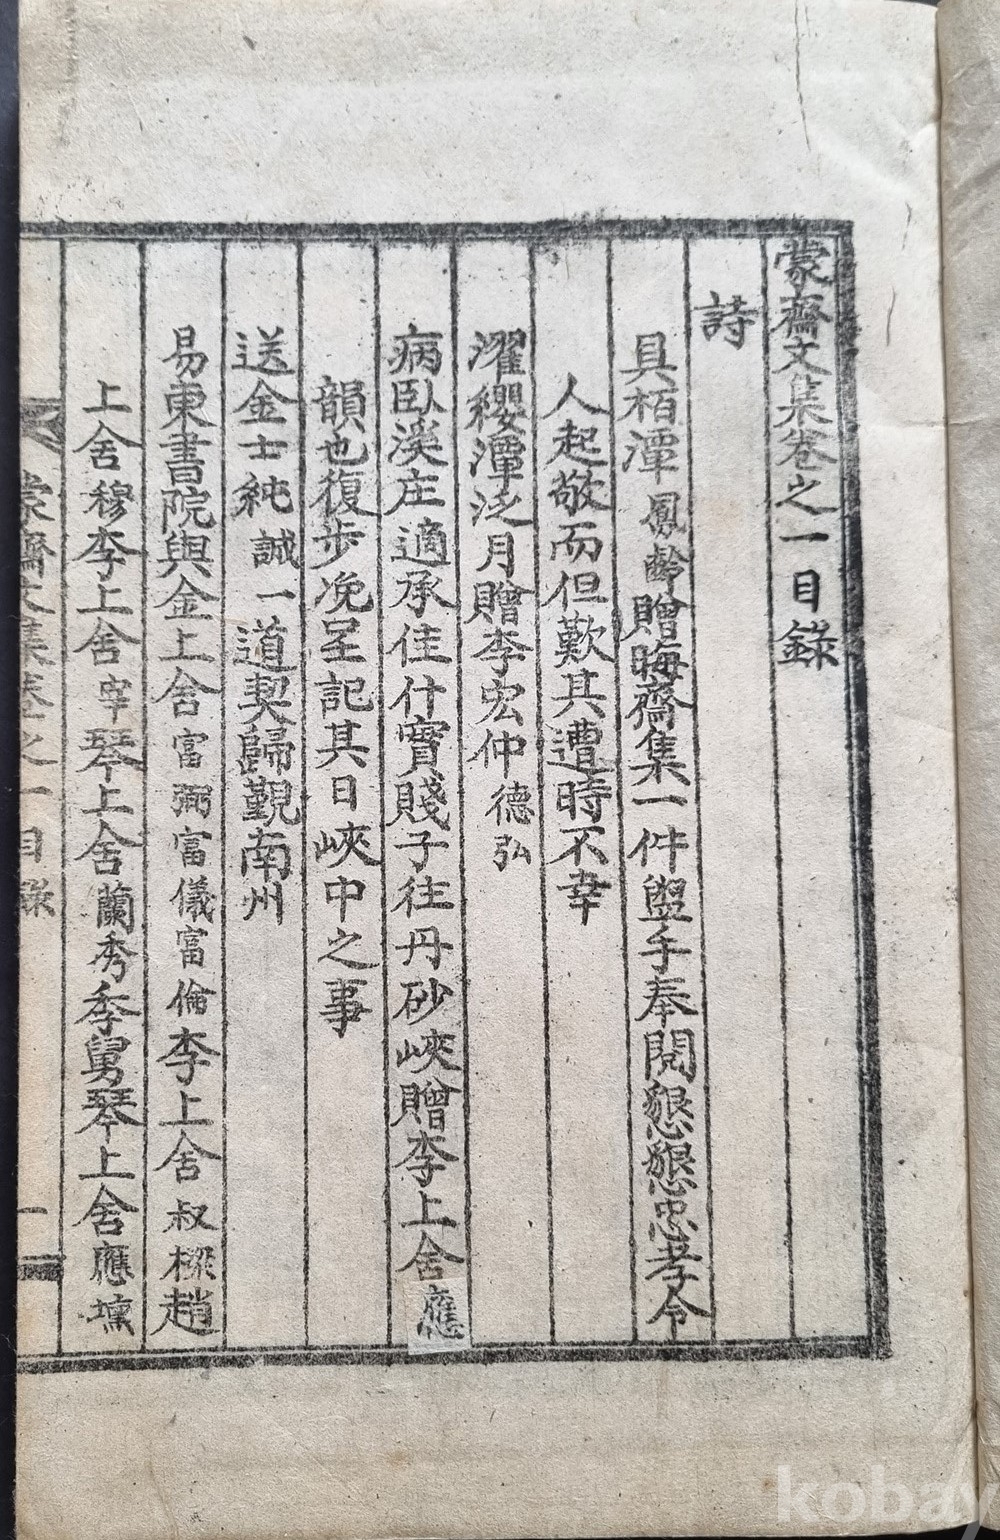 蒙齋文集卷之一目錄
詩
具栢潭鳳齡贈晦齋集一件盥手奉閱懇懇忠孝令
人起敬而但歎其遭時不幸
濯纓潭泛月贈李宏仲德弘
病臥溪庄適承佳什實賤子往丹砂峽贈李上舍應
韻也復步俛呈記其日峽中之事
送金士純誠一道契歸覲南州
易東書院與金上舍富弼富儀富倫李上舍叔樑趙
上舍穆李上舍宰琴上舍蘭秀季舅琴上舍應壎
蒙齋文集卷之一目錄 一
kobay